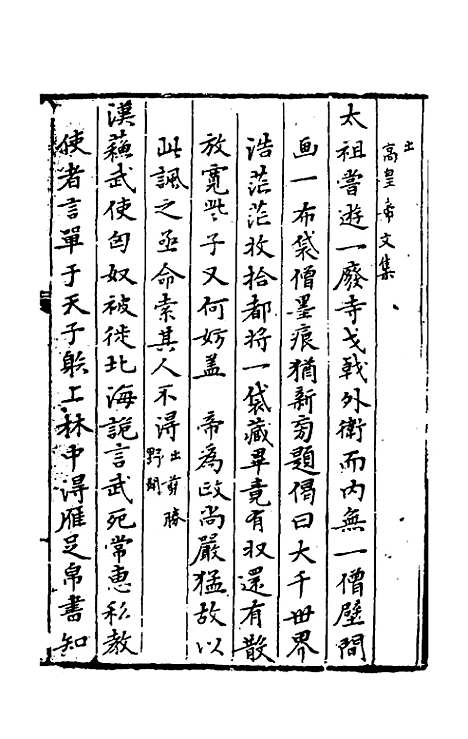 出高皇帝文集
太祖嘗遊一廢寺戈戟外衛而内無一僧壁間
画一布袋僧墨痕猶新旁題偈曰大千世界
浩茫茫收拾都将一袋藏畢竟有収還有散
放寬些子又何妨盖　帝為政尚嚴猛故以
此諷之亟命索其人不得出剪勝野聞
漢蘓武使匈奴被徙北海詭言武死常惠私教
使者言單于天子躲上林中得雁足帛書知